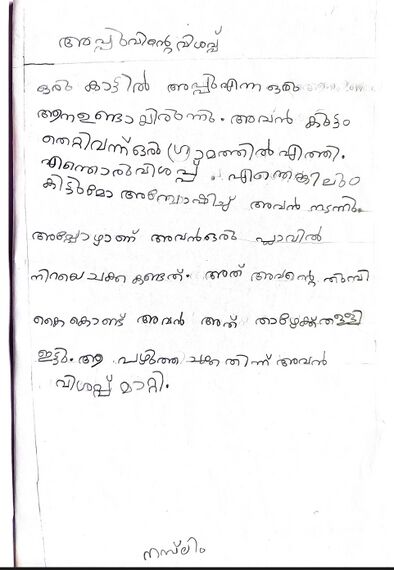 അപ്പുവിന്റെ വിശപ്പ്
ഒരു കാട്ടിൽ അപ്പുഎന്ന ഒരു
ആനഉണ്ടായിരുന്നു. അവൻ കൂട്ടം
തെറ്റിവന്ന് ഒരു ഗ്രാമത്തിൽ എത്തി.
എന്തൊരുവിശപ്പ്. എന്തെങ്കിലും
കിട്ടുമോ അന്വേഷിച്ച് അവൻ നടന്നു.
അപ്പോഴാണ് അവൻഒരു പ്ലാവിൽ
നിറയെ ചക്ക കണ്ടത്. അത് അവന്റെ തുമ്പി
കൈ കൊണ്ട് അവൻ അത് താഴേക്ക്തള്ളി
ഇട്ടു. ആ പഴുത്ത ചക്ക തിന്ന് അവൻ
വിശപ്പ് മാറ്റി.
നസ്ലിം